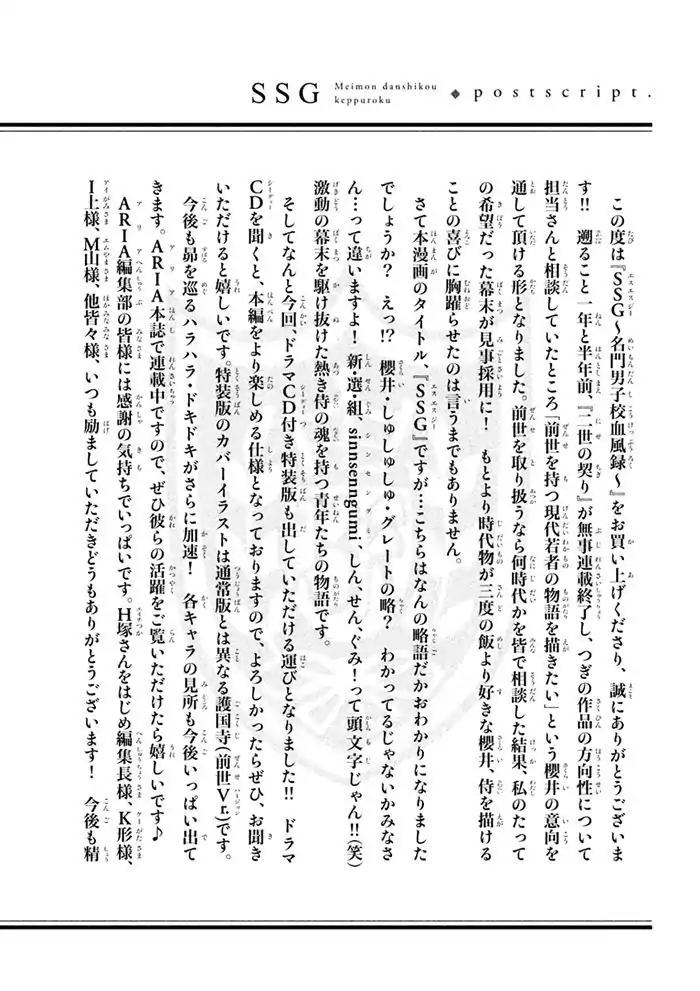 SSG
Meimon danshikou
keppuroku
◆postscript.
この度は『SSG〜名門男子校血風録〜』をお買い上げくださり、誠にありがとうございま
す!! 遡ること一年と半年前、『二世の契り』が無事連載終了し、つぎの作品の方向性について
担当さんと相談していたところ「前世を持つ現代若者の物語を描きたい」という櫻井の意向を
通して頂ける形となりました。前世を取り扱うなら何時代かを皆で相談した結果、私のたって
の希望だった幕末が見事採用に! もとより時代物が三度の飯より好きな櫻井、侍を描ける
ことの喜びに胸躍らせたのは言うまでもありません。
さて本漫画のタイトル、『SSG』ですが…こちらはなんの略語だかおわかりになりました
でしょうか? えっ!? 櫻井・しゅしゅしゅ・グレートの略? わかってるじゃないかみなさ
ん…って違いますよ! 新・選・組、sinnsenngumi、しん、せん、ぐみ!って頭文字じゃん!!(笑)
激動の幕末を駆け抜けた熱き侍の魂を持つ青年たちの物語です。
そしてなんと今回、ドラマCD付き特装版も出していただける運びとなりました!! ドラマ
CDを聞くと、本編をより楽しめる仕様となっておりますので、よろしかったらぜひ、お聞き
いただけると嬉しいです。特装版のカバーイラストは通常版とは異なる護国寺(前世Ver.)です。
今後も昴を巡るハラハラ・ドキドキがさらに加速! 各キャラの見所も今後いっぱい出て
きます。ARIA本誌で連載中ですので、ぜひ彼らの活躍をご覧いただけたら嬉しいです♪
ARIA編集部の皆様には感謝の気持ちでいっぱいです。H塚さんをはじめ編集長様、K形様、
I上様、M山様、他皆々様、いつも励ましていただきどうもありがとうございます! 今後も精